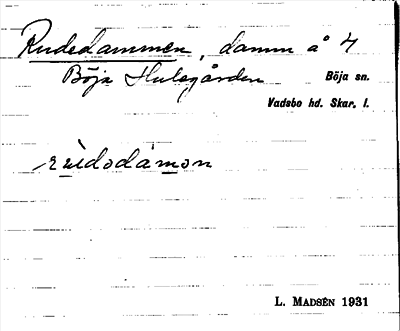 Rudedammen, damm å 4
Böja Hulegården Böja sn.
Vadsbo hd. Skar. l.
L. MADSÉN 1931